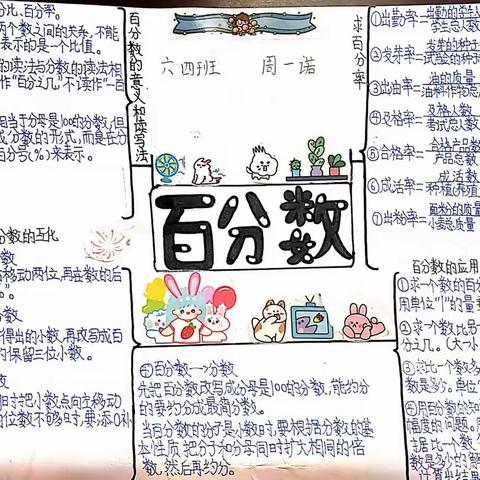 分比、百分率。
两个数之间的关系,不能
表示的是一个比值。
的读法与分数的读法相
作"百分之几"不读作"一百
相当于分母是100的分数,但
成分数的形式,而是在分
百分号(%)来表示。
百分数的意义和读写法
六四班 周一诺
求百分率
①出勤率=出勤的学生人
学生总人数
②发芽率=发芽的种子
试验的种子
③出油率=油的质量
油料作物总
④及格率=及格人数
考试总人数
⑤合格率=合格产品数
产品总数
⑥成活率=成活数
种植(养殖
⑦出粉率=面粉的质量
小麦总质量
百分数
分数的互化
数
移动两位,再在数的后
分数
得出的小数,再改写成百
的保留三位小数。
数
时把小数点向左移动
的位数不够时,要添0补
④百分数→分数
先把百分数改写成分母是100的分数,能约分
的要约分成最简分数。
当百分数的分子是小数时,要根据分数的基
本性质把分子和分母同时扩大相同的倍
数,然后再约分。
百分数的应用
①求一个数的百分
用单位"1"的量乘
②求一个数比另一
分之几。(大一小
③已知比一个数多
数是多少。单位"
④用百分数的知识
幅度的问题。
据比一个数
数是多少的解
计算出结